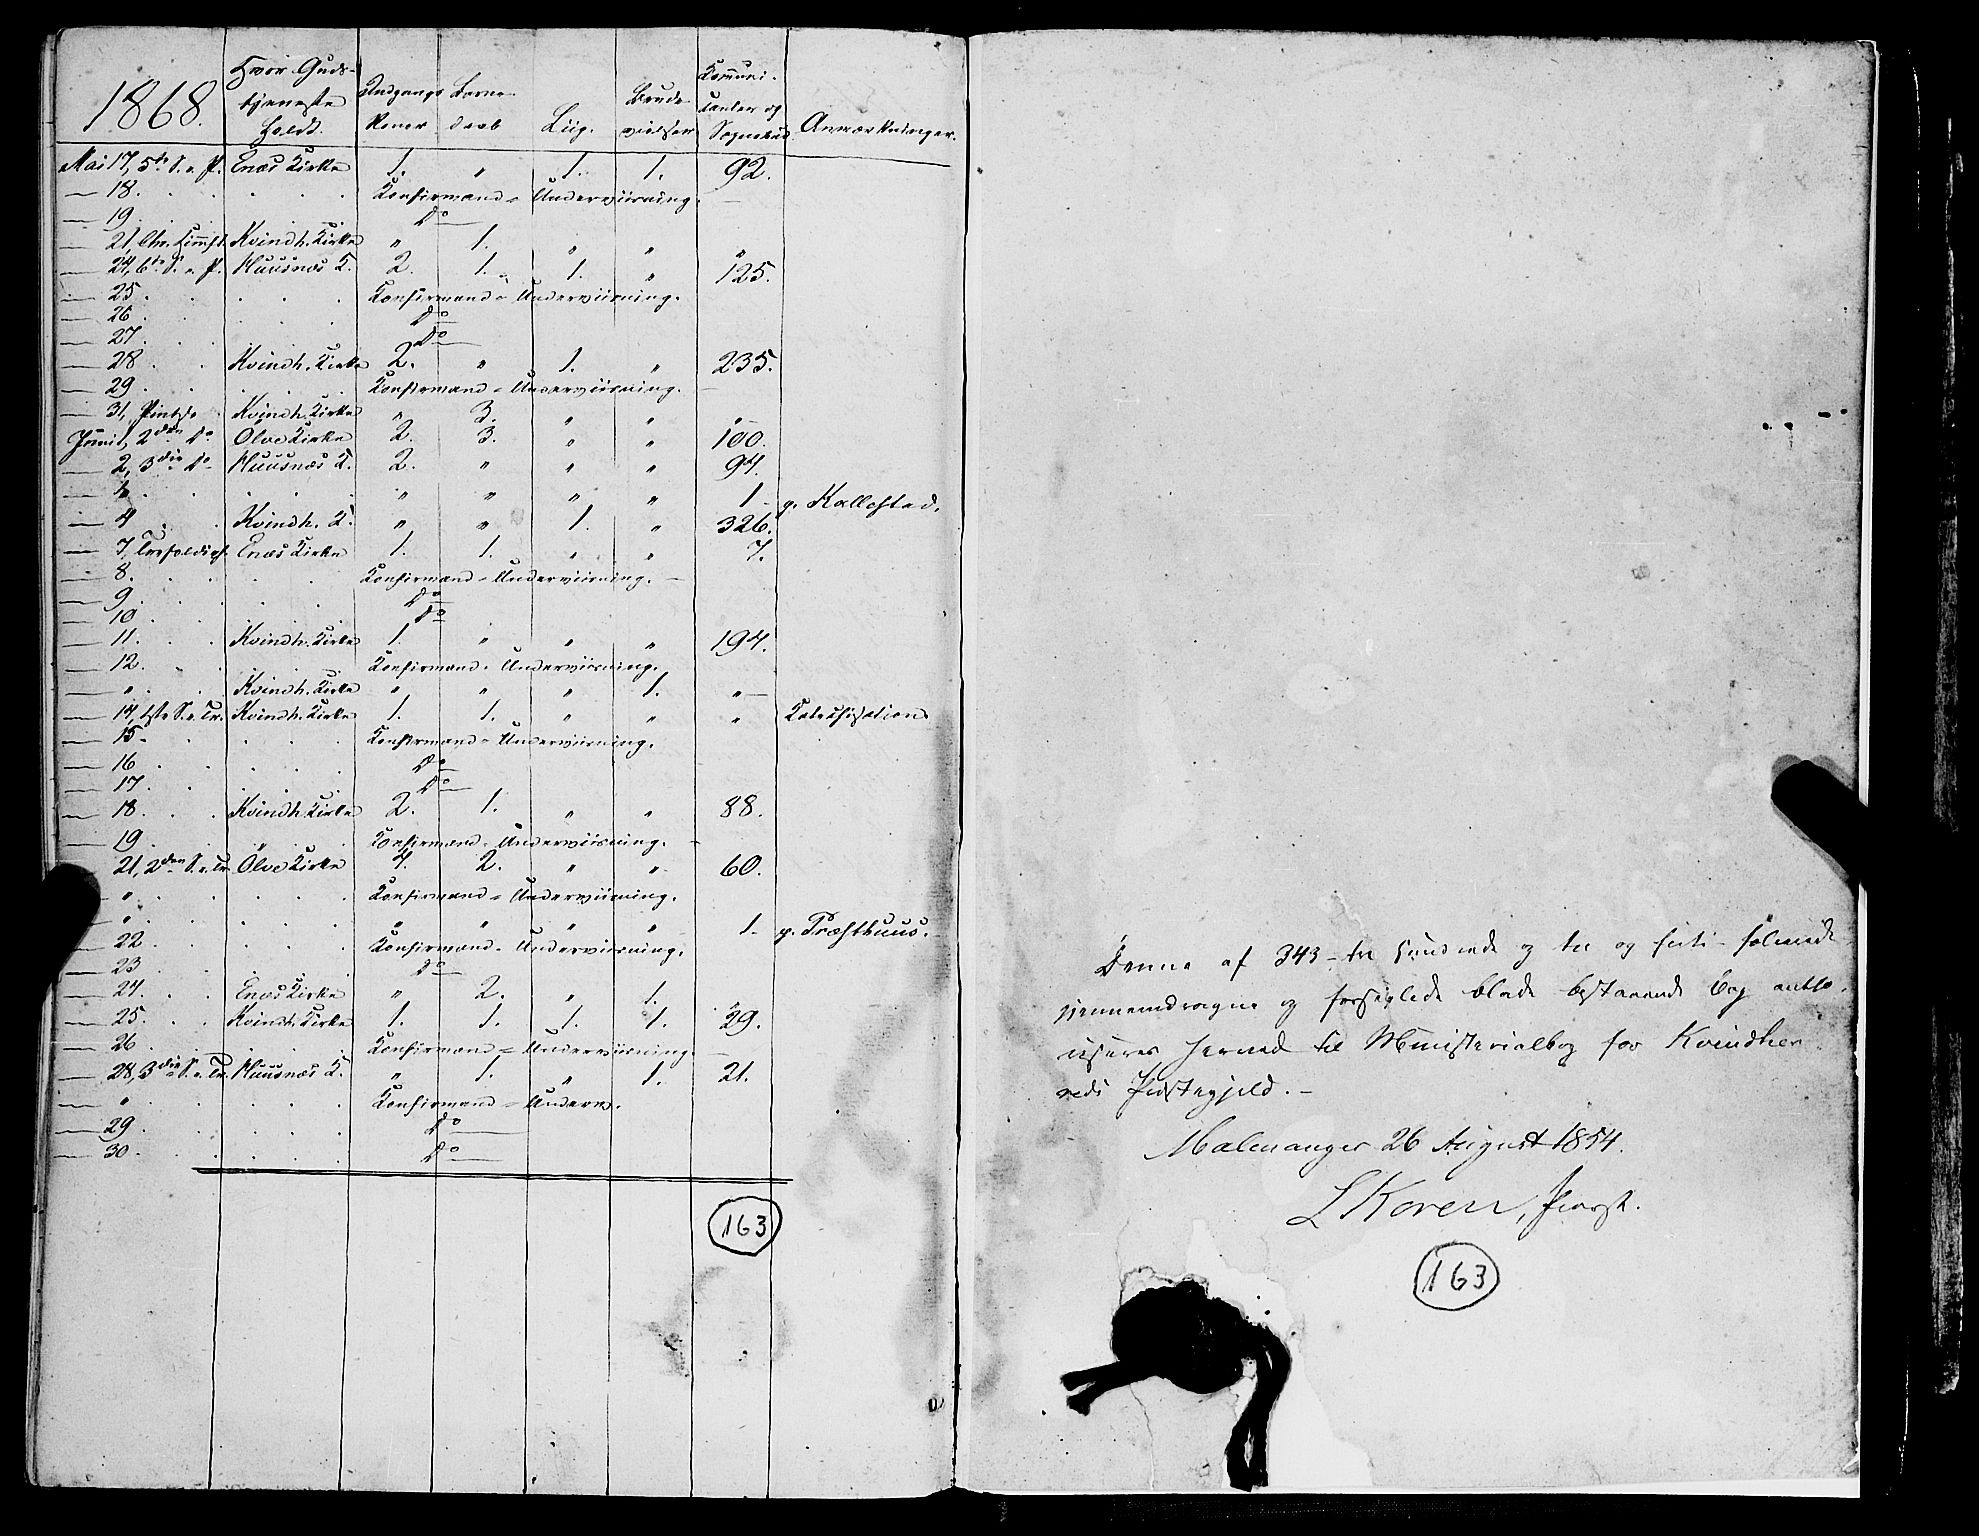 1868.
Hvor Guds-
tjeneste
holdt.
Indgangs
Koner
Barne
daab
Liig.
Brude
vielser
Kommuni-
canter og
Sognebud
Anmærkninger.
Mai 17, 5te S. e. P. Enæs Kirke 1. " 1. 1. 92.
— 18. . . . . Konfirmand-Underviisning. —
— 19. . . . . Do —
— 21, Chr. Himmf. Kvindh. Kirke " 1. " " "
— 24, 6te S. e. P. Huusnæs K. 2. 1. 1. " 125.
— 25. . . . . Konfirmand-Underviisning.
— 26. . . . . Do —
— 27. . . . . Do —
— 28. . . Kvindh. Kirke 2. " 1. " 235.
— 29. . . . . Konfirmand-Underviisning. —
— 31, Pintse Kvindh. Kirke " 3. " " "
Juni 1, 2den Do Ølve Kirke 2. 3. " " 100.
— 2, 3die Do Huusnæs K. 2. " " " 94.
— " . . . . . " " " " 1 - p. Kallestad.
— 4 . . Kvindh. K. " " 1. " 326.
— 7, Trefoldigh. Enæs Kirke 1. 1. " " 7.
— 8. . . . . Konfirmand-Underviisning. —
— 9. . . . . Do —
— 10. . . . . Do —
— 11. . . Kvindh. Kirke 1. " " " 194.
— 12. . . . . Konfirmand-Underviisning.
— " . . . Kvindh. Kirke " " " 1. " —
— 14, 1ste S. e. Tr. Kvindh. Kirke 1. 1. " " " Katechisation
— 15. . . . . Konfirmand-Underviisning.
— 16. . . . . Do —
— 17. . . . . Do —
— 18. . . Kvindh. Kirke 2. 1. " " 88.
— 19. . . " . Konfirmand-Underviisning. -
— 21, 2den S. e. Tr. Ølve Kirke 4. 2. " " 60.
— " . . . . . Konfirmand-Underviisning.
— " . . . . . " " " " 1. p. Præsthuus.
— 22. . . . . Konfirmand-Underviisning.
— 23. . . . . Do —
— 24. . . Enæs Kirke " 2. " 1. "
— 25. . . Kvindh. Kirke 1. 1. 1. 1. 29.
— 26. . . . . Konfirmand-Underviisning. —
— 28, 3die S. e. Tr. Huusnæs K. " 1. " 1. 21.
— " . . . . . Konfirmand-Underv.
— 29. . . . . Do —
— 30. . . . . Do —
163
Denne af 343 - tre hundrede og tre og firti - følmerede
gjennemdragne og forseglede Blade bestaaende Bog autho-
riseres herved til Ministerialbog for Kvindher-
reds Præstegjeld. -
Malmanger 26 August 1854.
L Koren, Provst.
163